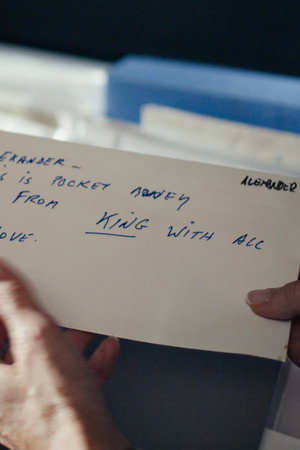 EXANDER –
S IS POCKET MONEY
FROM KING WITH ALL
OVE.
ALEXANDER